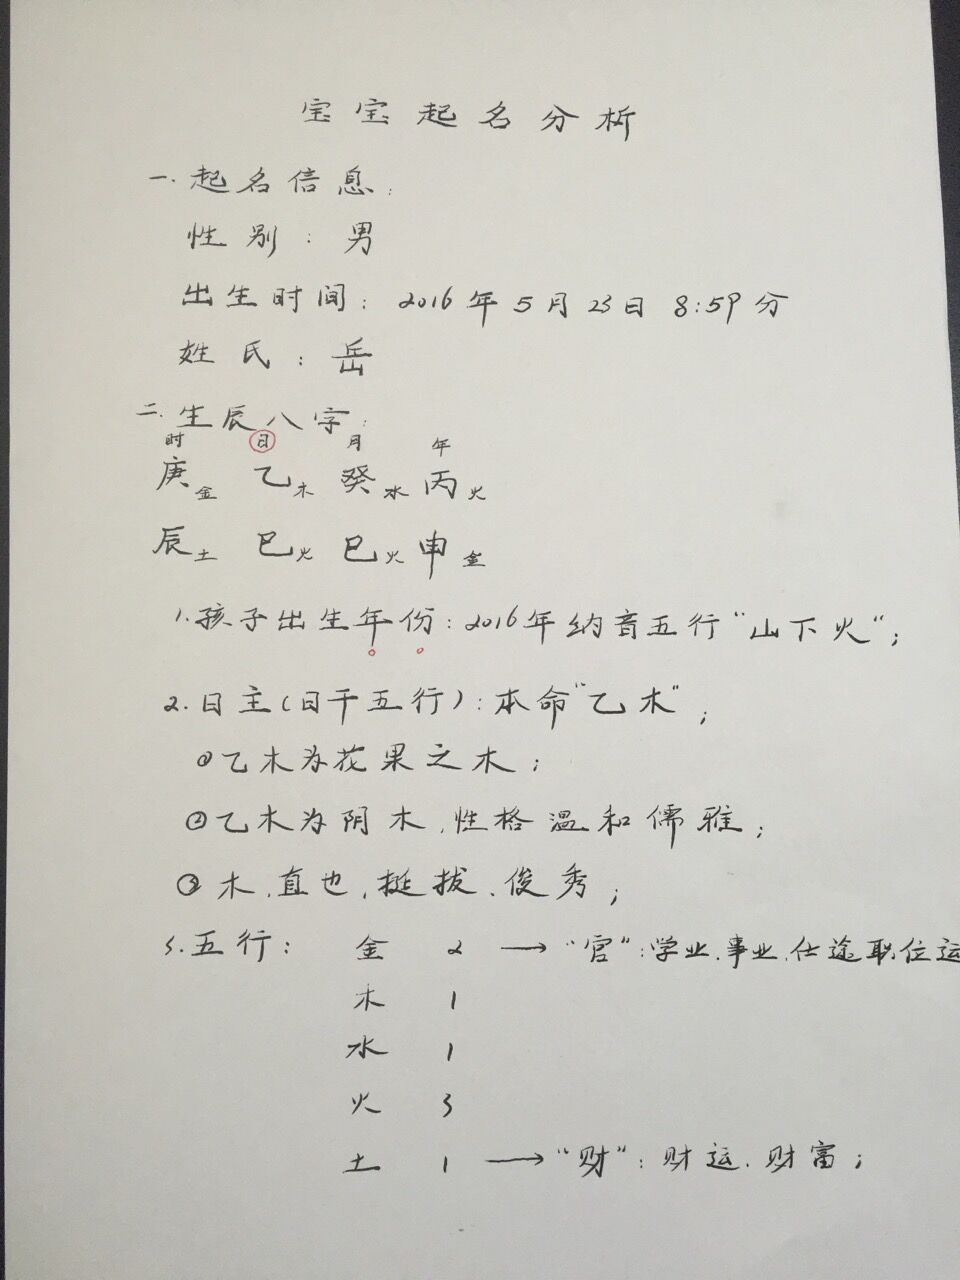 宝宝起名分析
一.起名信息:
性别:男
出生时间:2016年5月23日 8:59分
姓氏:岳
二.生辰八字:
时 日 月 年
庚金 乙木 癸水 丙火
辰土 巳火 巳火 申金
1.孩子出生年份:2016年纳音五行“山下火”;
2.日主(日干五行):本命“乙木”;
①乙木为花果之木;
②乙木为阴木,性格温和儒雅;
③木,直也,挺拔、俊秀;
3.五行: 金 2 → “官”:学业、事业、仕途职位运
木 1
水 1
火 3
土 1 → “财”:财运、财富;